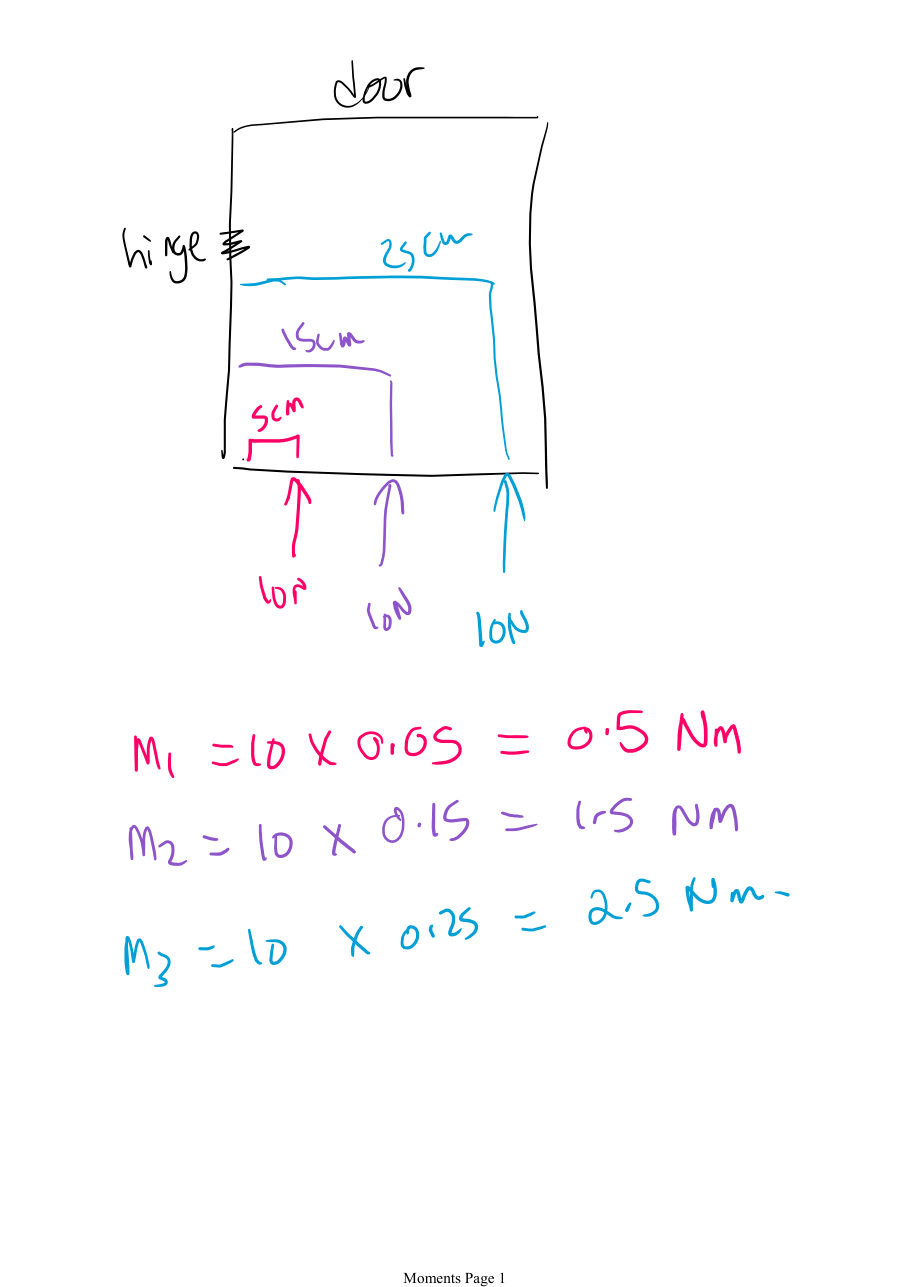 door
hinge
25cm
15cm
5cm
10N
10N
10N
M1 = 10 x 0.05 = 0.5 Nm
M2 = 10 x 0.15 = 1.5 NM
M3 = 10 x 0.25 = 2.5 Nm -
Moments Page 1